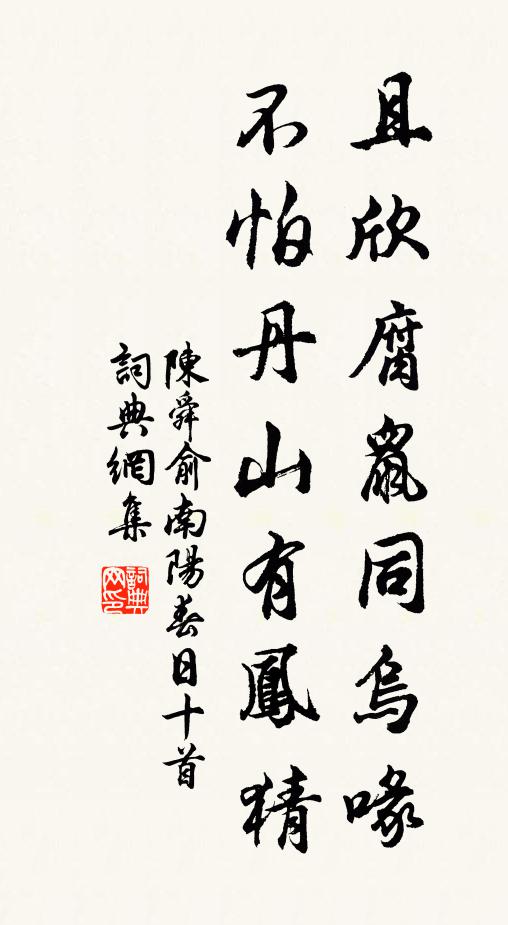 且欣腐鼠同烏喙
不怕丹山有鳳猜
陳舜俞南陽春日十首
詞典網集
詞典網印